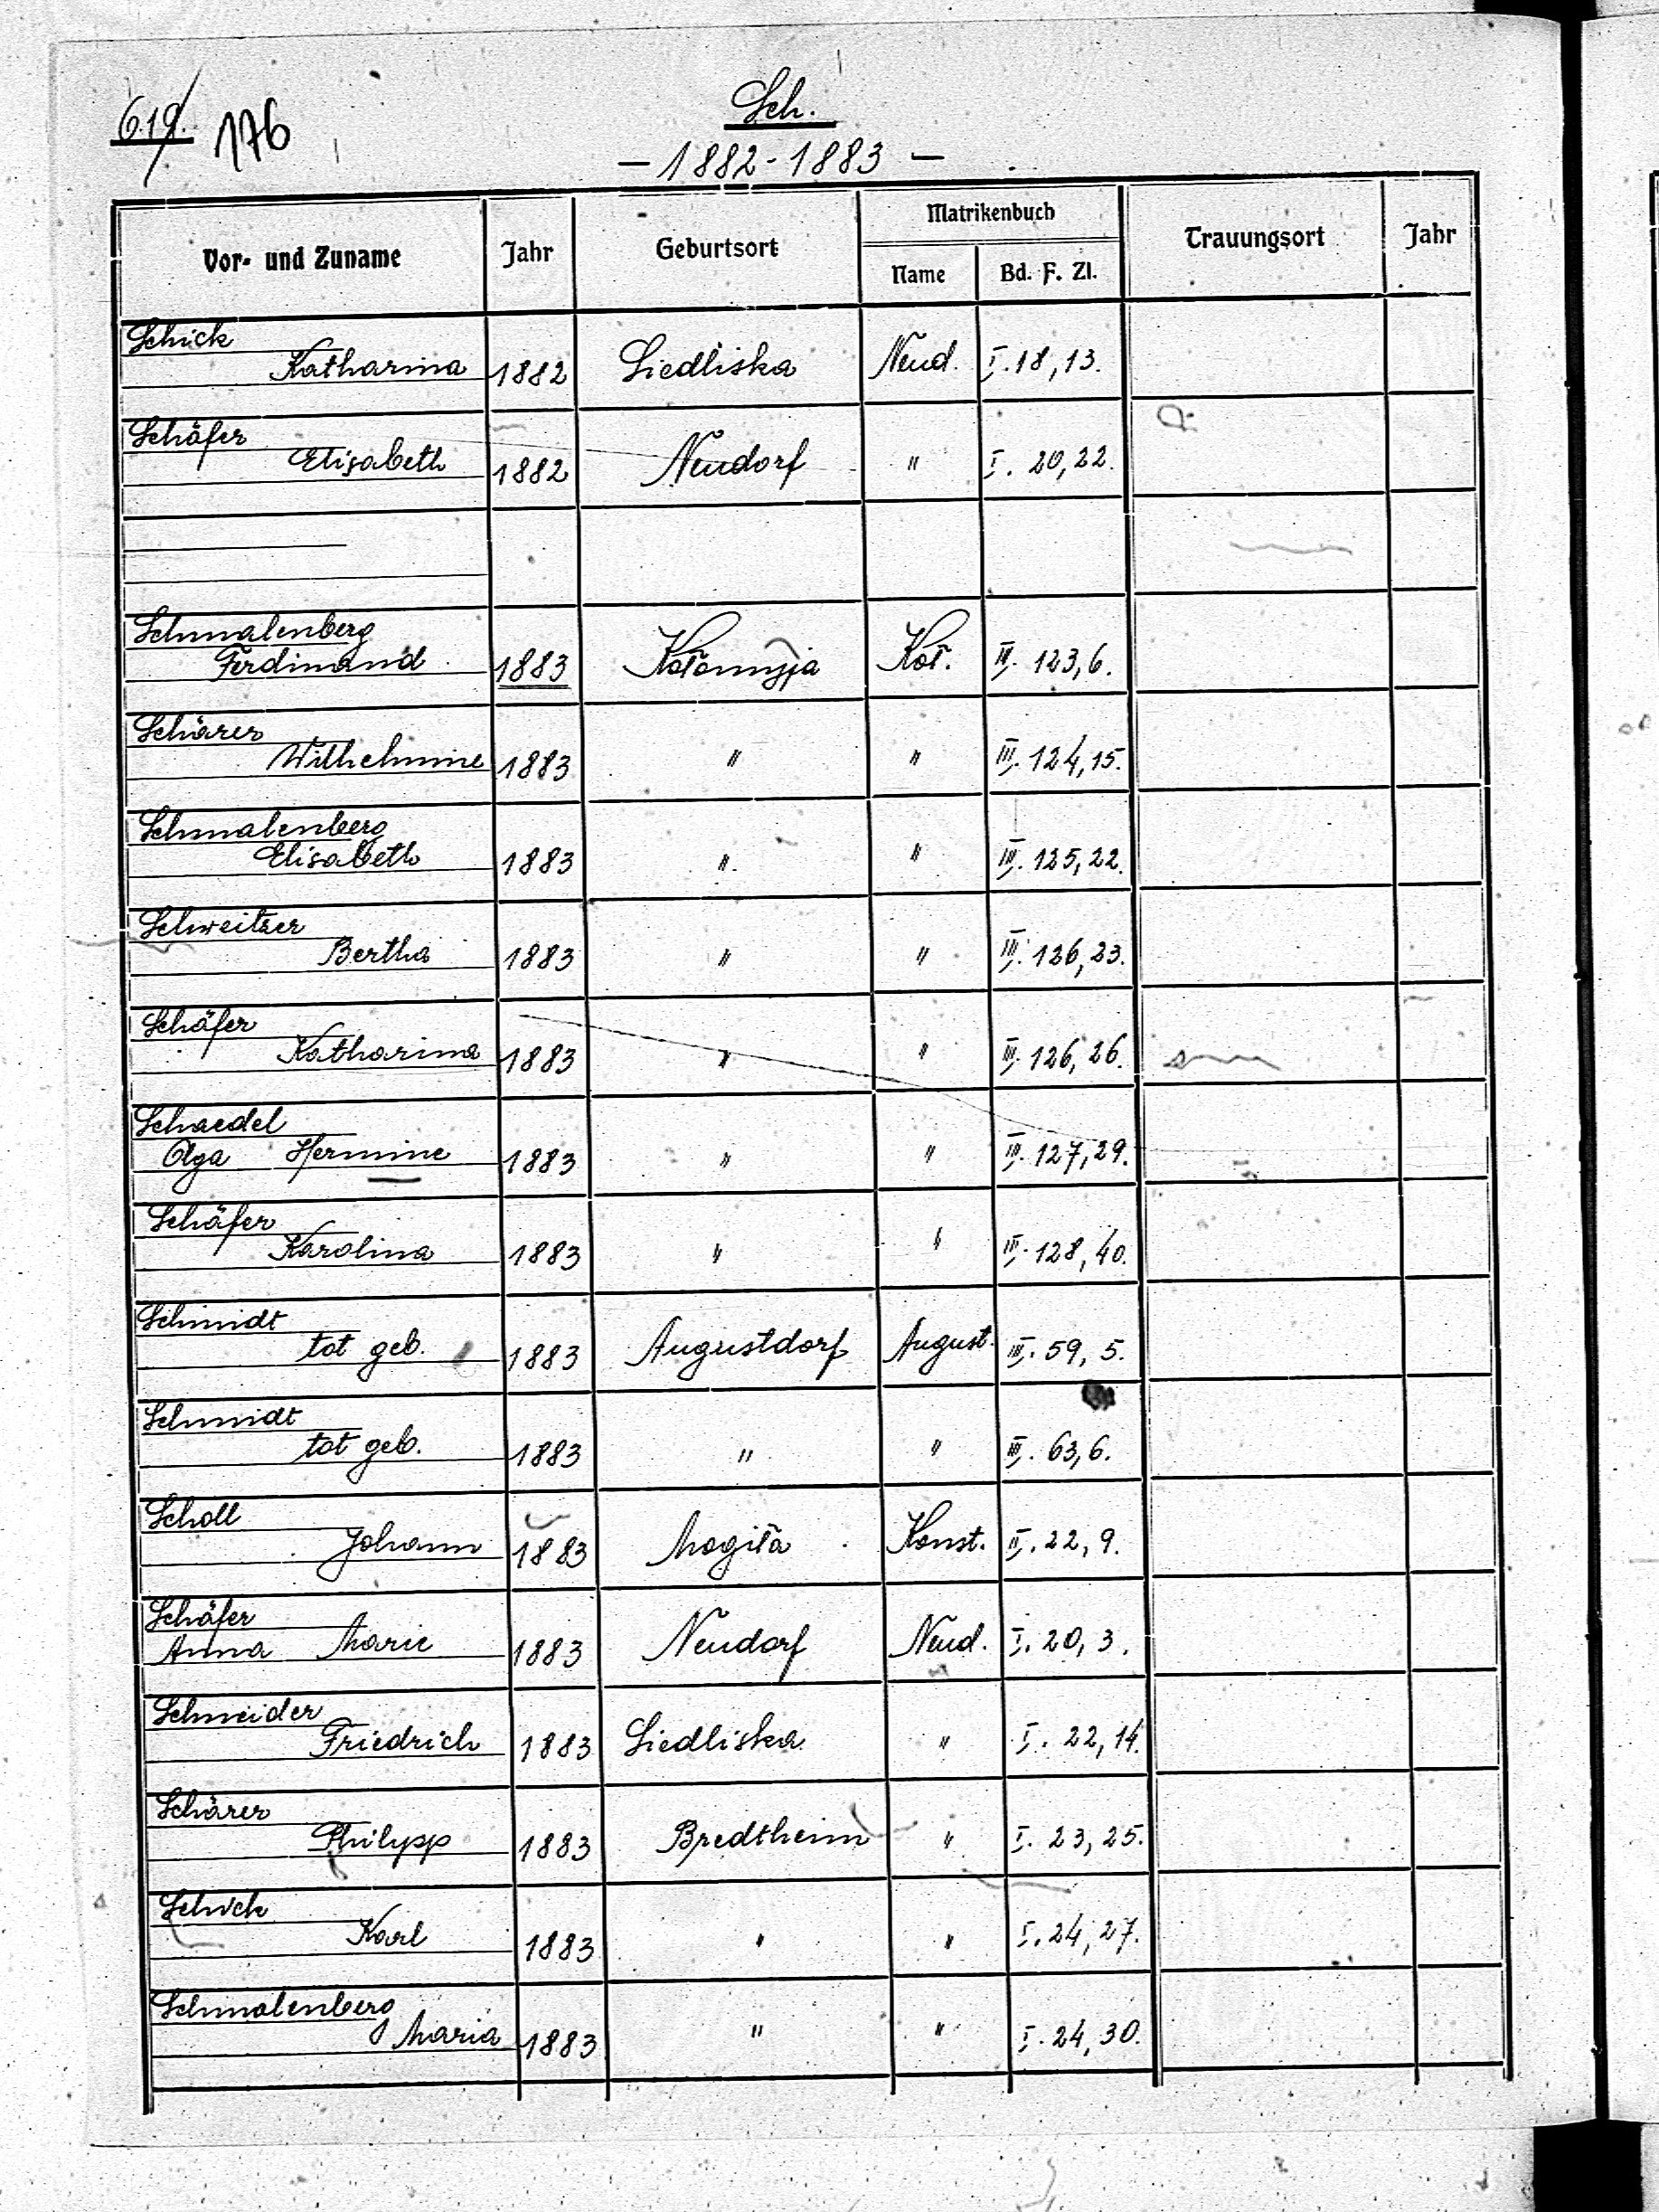 619. 176
Sch.
— 1882-1883 —
Vor- und Zuname Jahr Geburtsort Matrikenbuch Trauungsort Jahr
Name Bd. F. Zl.
Schick
Katharina 1882 Siedliska Neud. I. 18, 13.
Schäfer
Elisabeth 1882 Neudorf " I. 20, 22.
Schmalenberg
Ferdinand 1883 Kołomyja Koł. III. 123, 6.
Schärer
Wilhelmine 1883 " " III. 124, 15.
Schmalenberg
Elisabeth 1883 " " III. 125, 22.
Schweitzer
Bertha 1883 " " III. 126, 23.
Schäfer
Katharina 1883 " " III. 126, 26.
Schaedel
Olga Hermine 1883 " " III. 127, 29.
Schäfer
Karolina 1883 " " III. 128, 40.
Schmidt
tot geb. 1883 Augustdorf August. III. 59, 5.
Schmidt
tot geb. 1883 " " III. 63, 6.
Scholl
Johann 1883 Mogiła Konst. II. 22, 9.
Schäfer
Anna Marie 1883 Neudorf Neud. I. 20, 3.
Schneider
Friedrich 1883 Siedliska " I. 22, 14.
Schärer
Philypp 1883 Bredtheim " I. 23, 25.
Schick
Karl 1883 " " I. 24, 27.
Schmalenberg
Maria 1883 " " I. 24, 30.